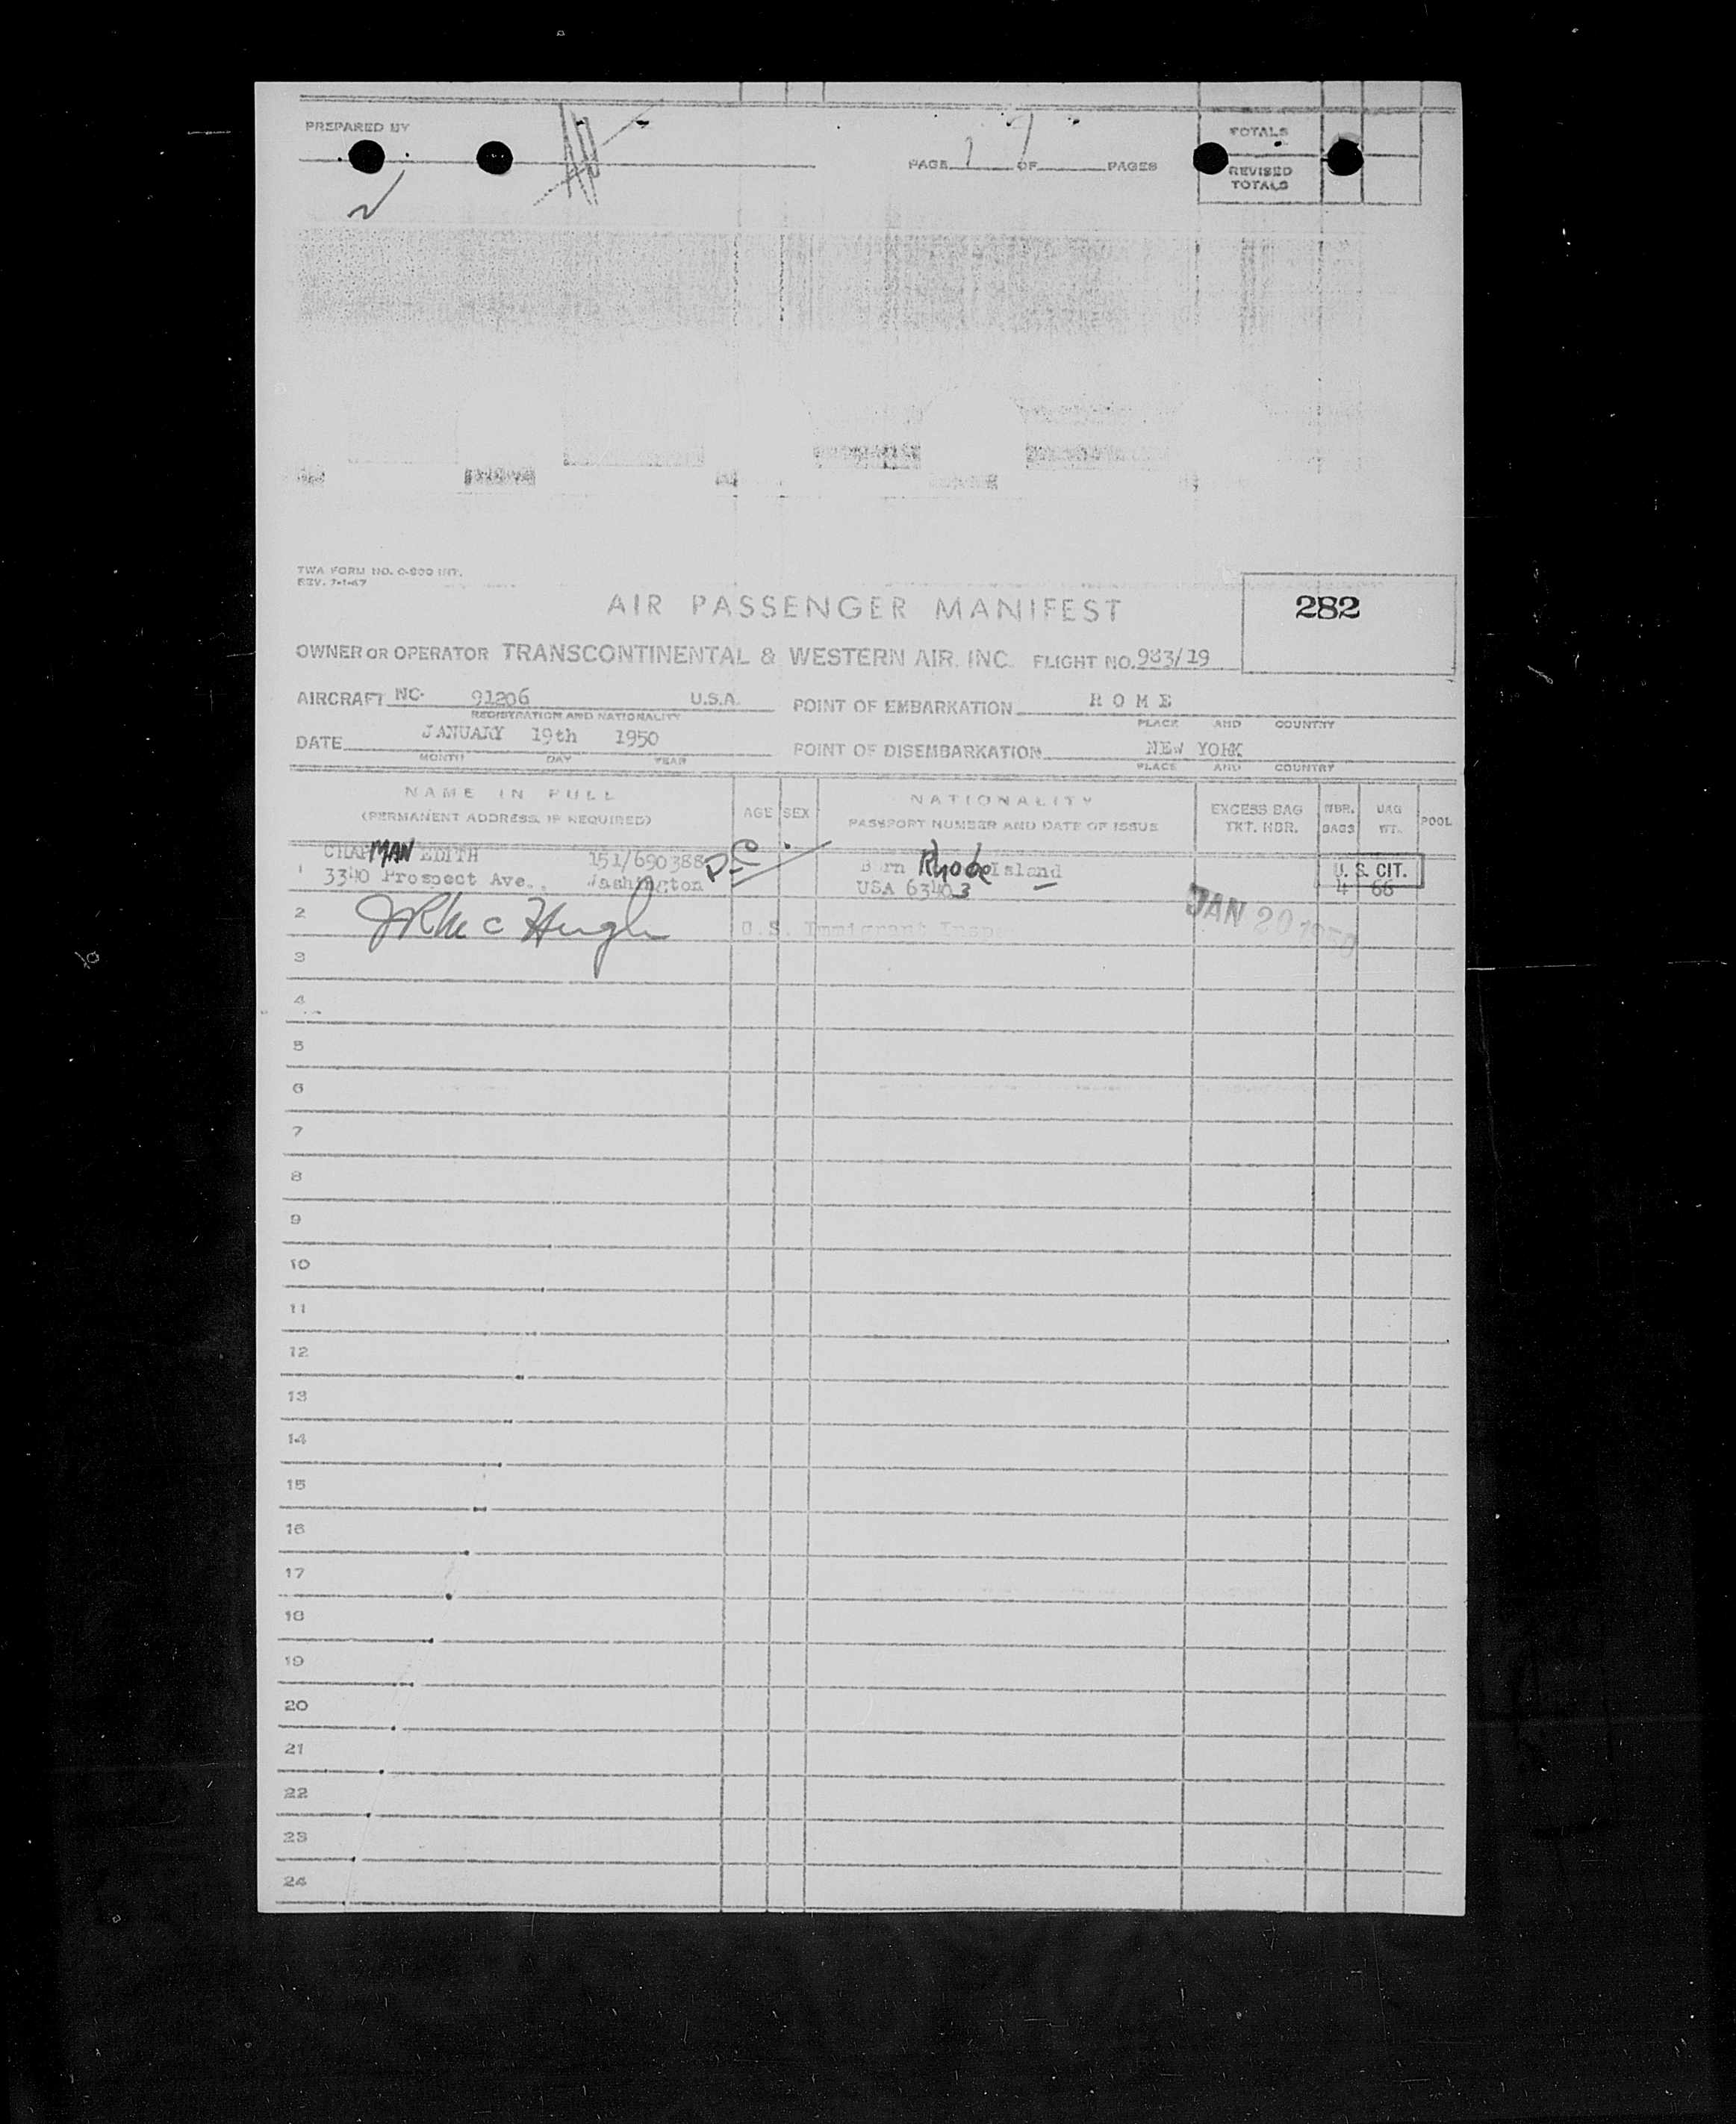 PREPARED BY
PAGE 1 OF PAGES
TOTALS
REVISED
TOTALS
TWA FORM NO. O-800 INT.
REV. 7-1-47
AIR PASSENGER MANIFEST
282
OWNER OR OPERATOR TRANSCONTINENTAL & WESTERN AIR. INC. FLIGHT NO. 983/19
AIRCRAFT NC. 91206 U.S.A. POINT OF EMBARKATION ROME
REGISTRATION AND NATIONALITY PLACE AND COUNTRY
DATE JANUARY 19th 1950 POINT OF DISEMBARKATION NEW YORK
MONTH DAY YEAR PLACE AND COUNTRY
NAME IN FULL
(PERMANENT ADDRESS, IF REQUIRED)
AGE SEX
NATIONALITY
PASSPORT NUMBER AND DATE OF ISSUE
EXCESS BAG
TKT. NBR.
NBR.
BAGS
BAG
WT.
POOL
1 CHAPMAN EDITH 151/690388 Born Rhode Island U. S. CIT.
3340 Prospect Ave., Washington USA 63403 4 66
2 JR McHugh U.S. Immigrant JAN 20 1950
3
4
5
6
7
8
9
10
11
12
13
14
15
16
17
18
19
20
21
22
23
24